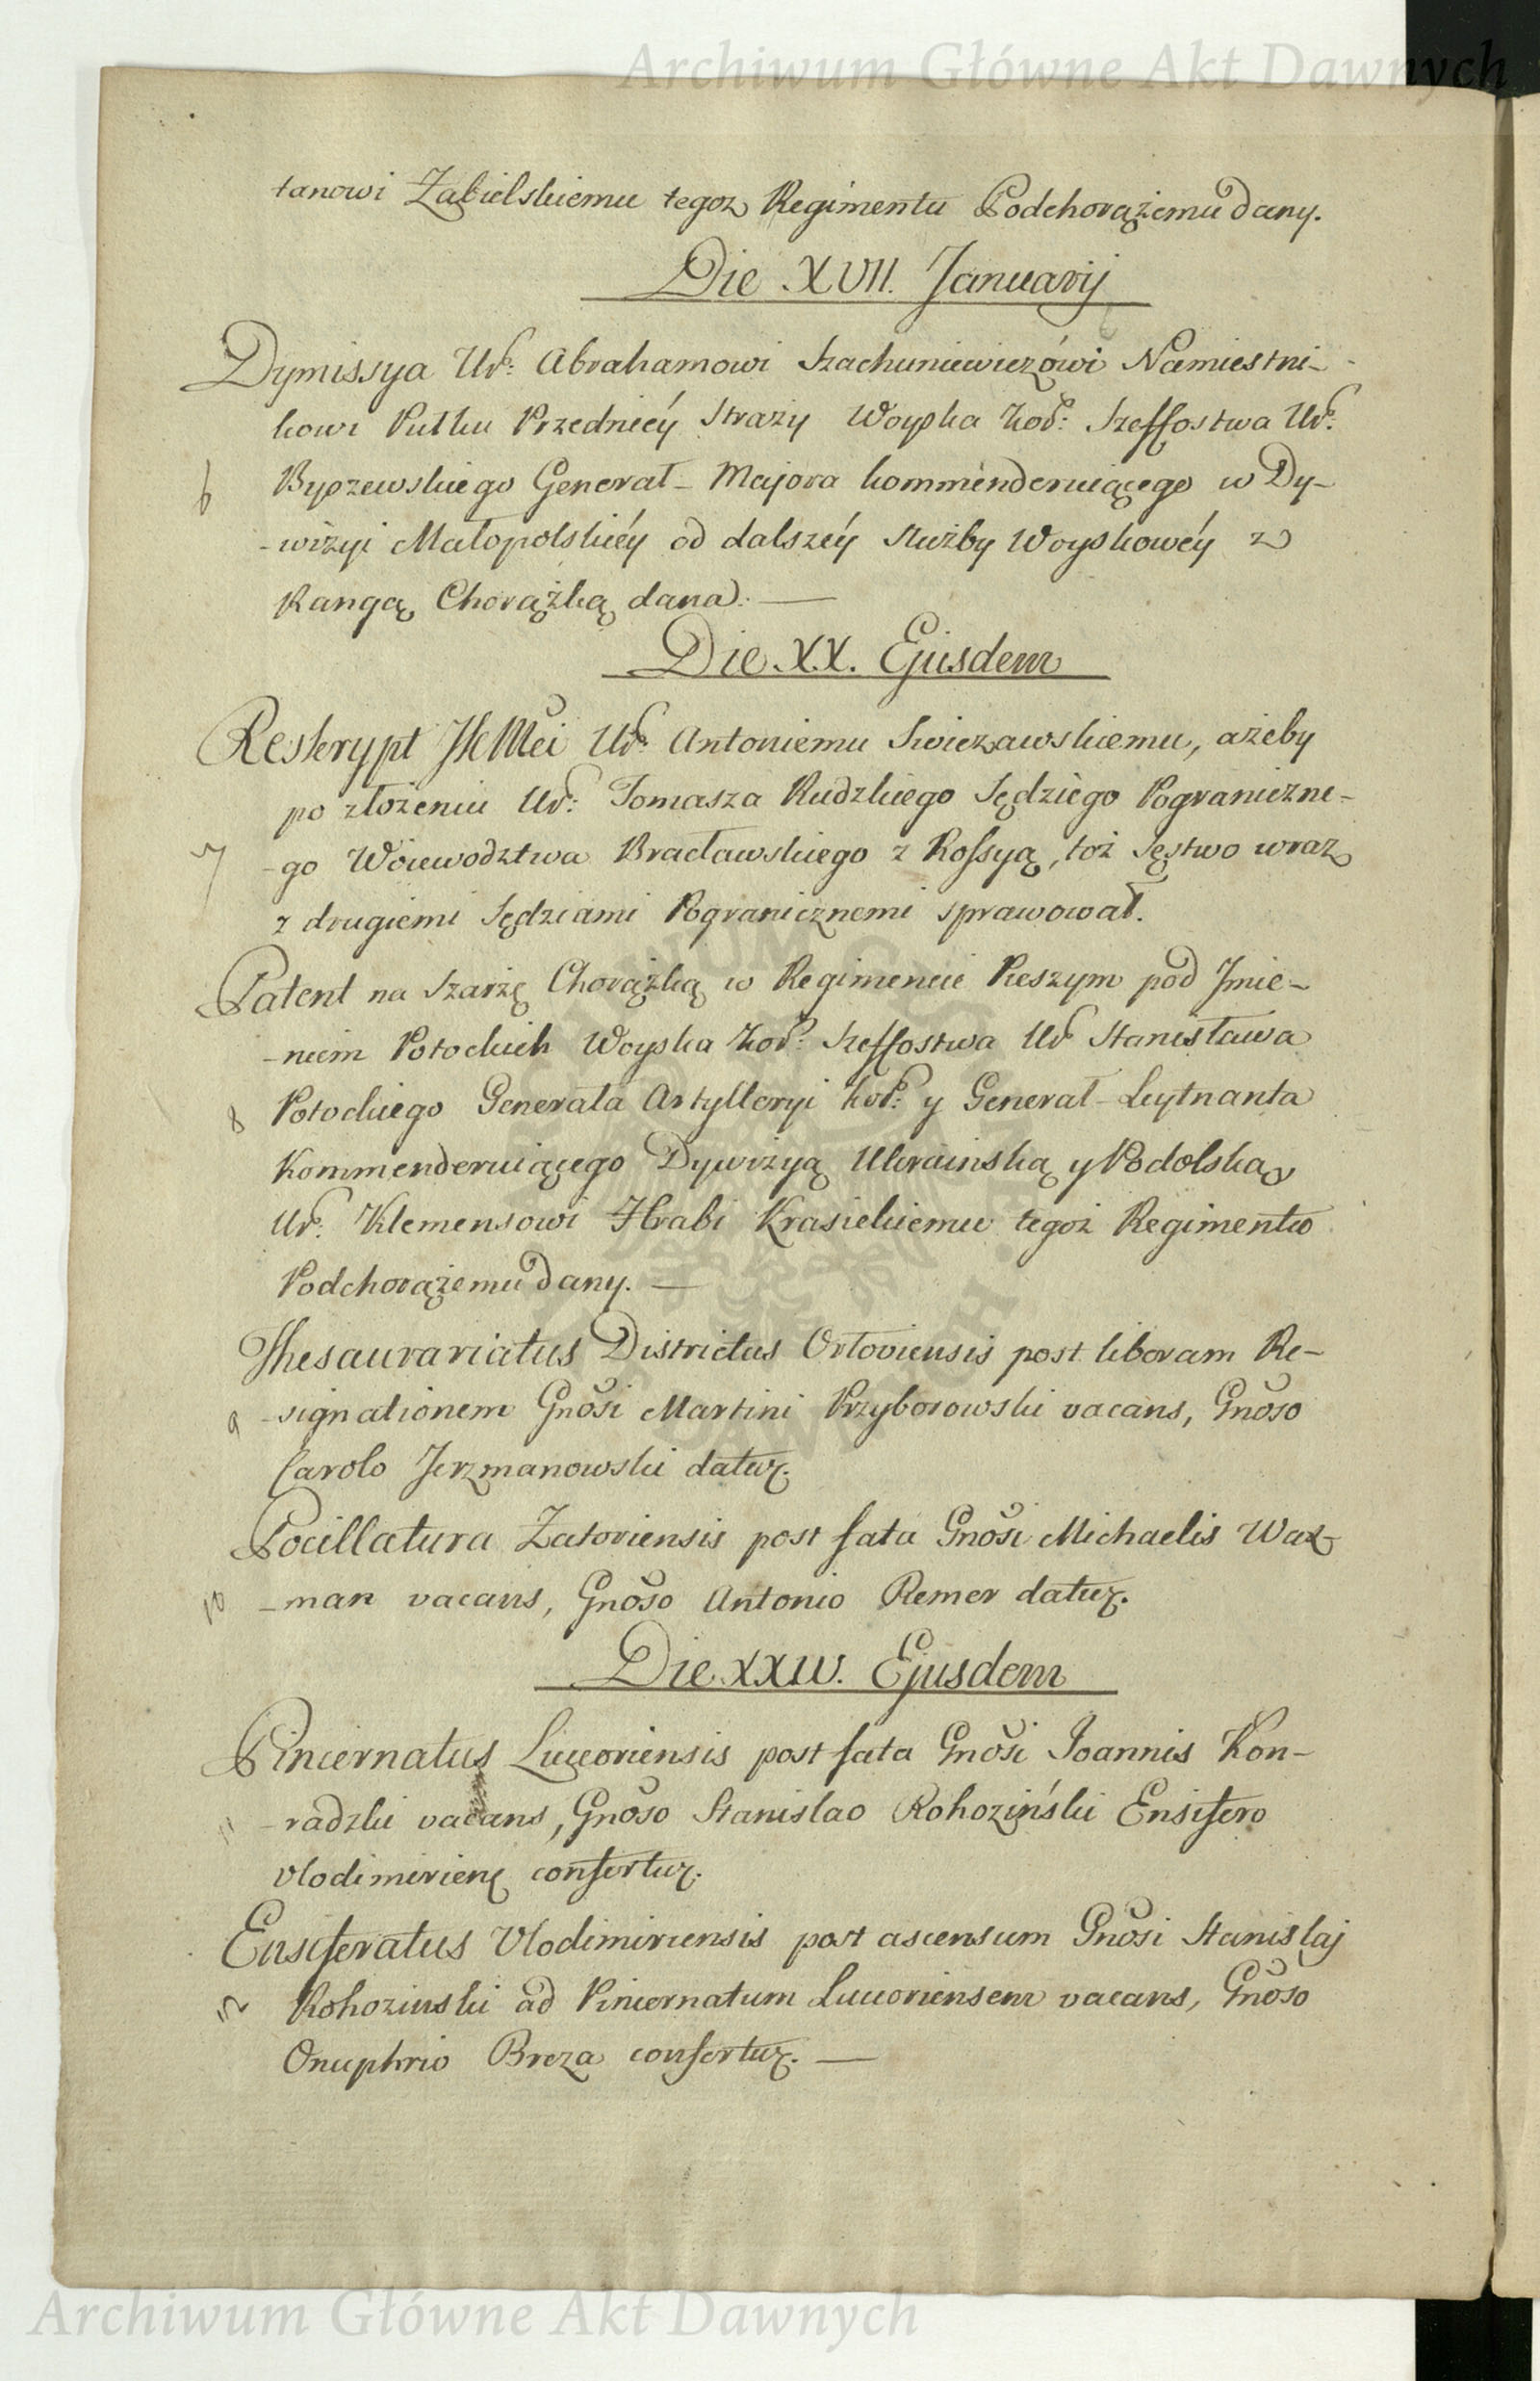 Archiwum Główne Akt Dawnych
tanowi Zabielskiemu tegoz Regimentu Podchorążemu dany.
Die XVII. Januarij
Dymissya Ur: Abrahamowi Szachuniewiczówi Namiestni-
kowi Pułku Przedniéy Straży Woyska Kor: Szeffostwa Ur:
6 Byszewskiego Generał-Majora kommenderuiącego w Dy-
-wizyi Małopolskiéy od dalszéy służby Woyskowéy z
Rangą Chorążką dana. —
Die XX. Ejusdem
Reskrypt JKMci Ur: Antoniemu Swiezawskiemu, ażeby
po złożeniu Ur: Tomasza Rudzkiego Sędziego Pograniczne-
7 -go Woiewodztwa Bracławskiego z Rossyą, toż Sęstwo wraz
z drugiemi Sędziami Pogranicznemi sprawował.
Patent na Szarżę Chorążką w Regimencie Pieszym pod Jmie-
-niem Potockich Woyska Kor: Szeffostwa Ur Stanisława
8 Potockiego Generała Artylleryi Kor: y Generał-Leytnanta
Kommenderuiącego Dywizyą Ukrainską y Podolską
Ur: Klemensowi Hrabi Krasickiemu tegoż Regimentu
Podchorążemu dany. —
Thesaurariatus Districtus Orłoviensis post liberam Re-
9 -signationem Gnosi Martini Przyborowski vacans, Gnoso
Carolo Jerzmanowski datur.
Pocillatura Zatoriensis post fata Gnosi Michaelis Wax-
10 -man vacans, Gnoso Antonio Remer datur.
Die XXIV. Ejusdem
Pincernatus Luceoriensis post fata Gnosi Joannis Kon-
11 -radzki vacans, Gnoso Stanislao Rohoziński Ensifero
Vlodimirien confertur.
Ensiferatus Vlodimiriensis post ascensum Gnosi Stanislaj
12 Rohozinski ad Pincernatum Luceoriensem vacans, Gnoso
Onuphrio Breza confertur. —
Archiwum Główne Akt Dawnych